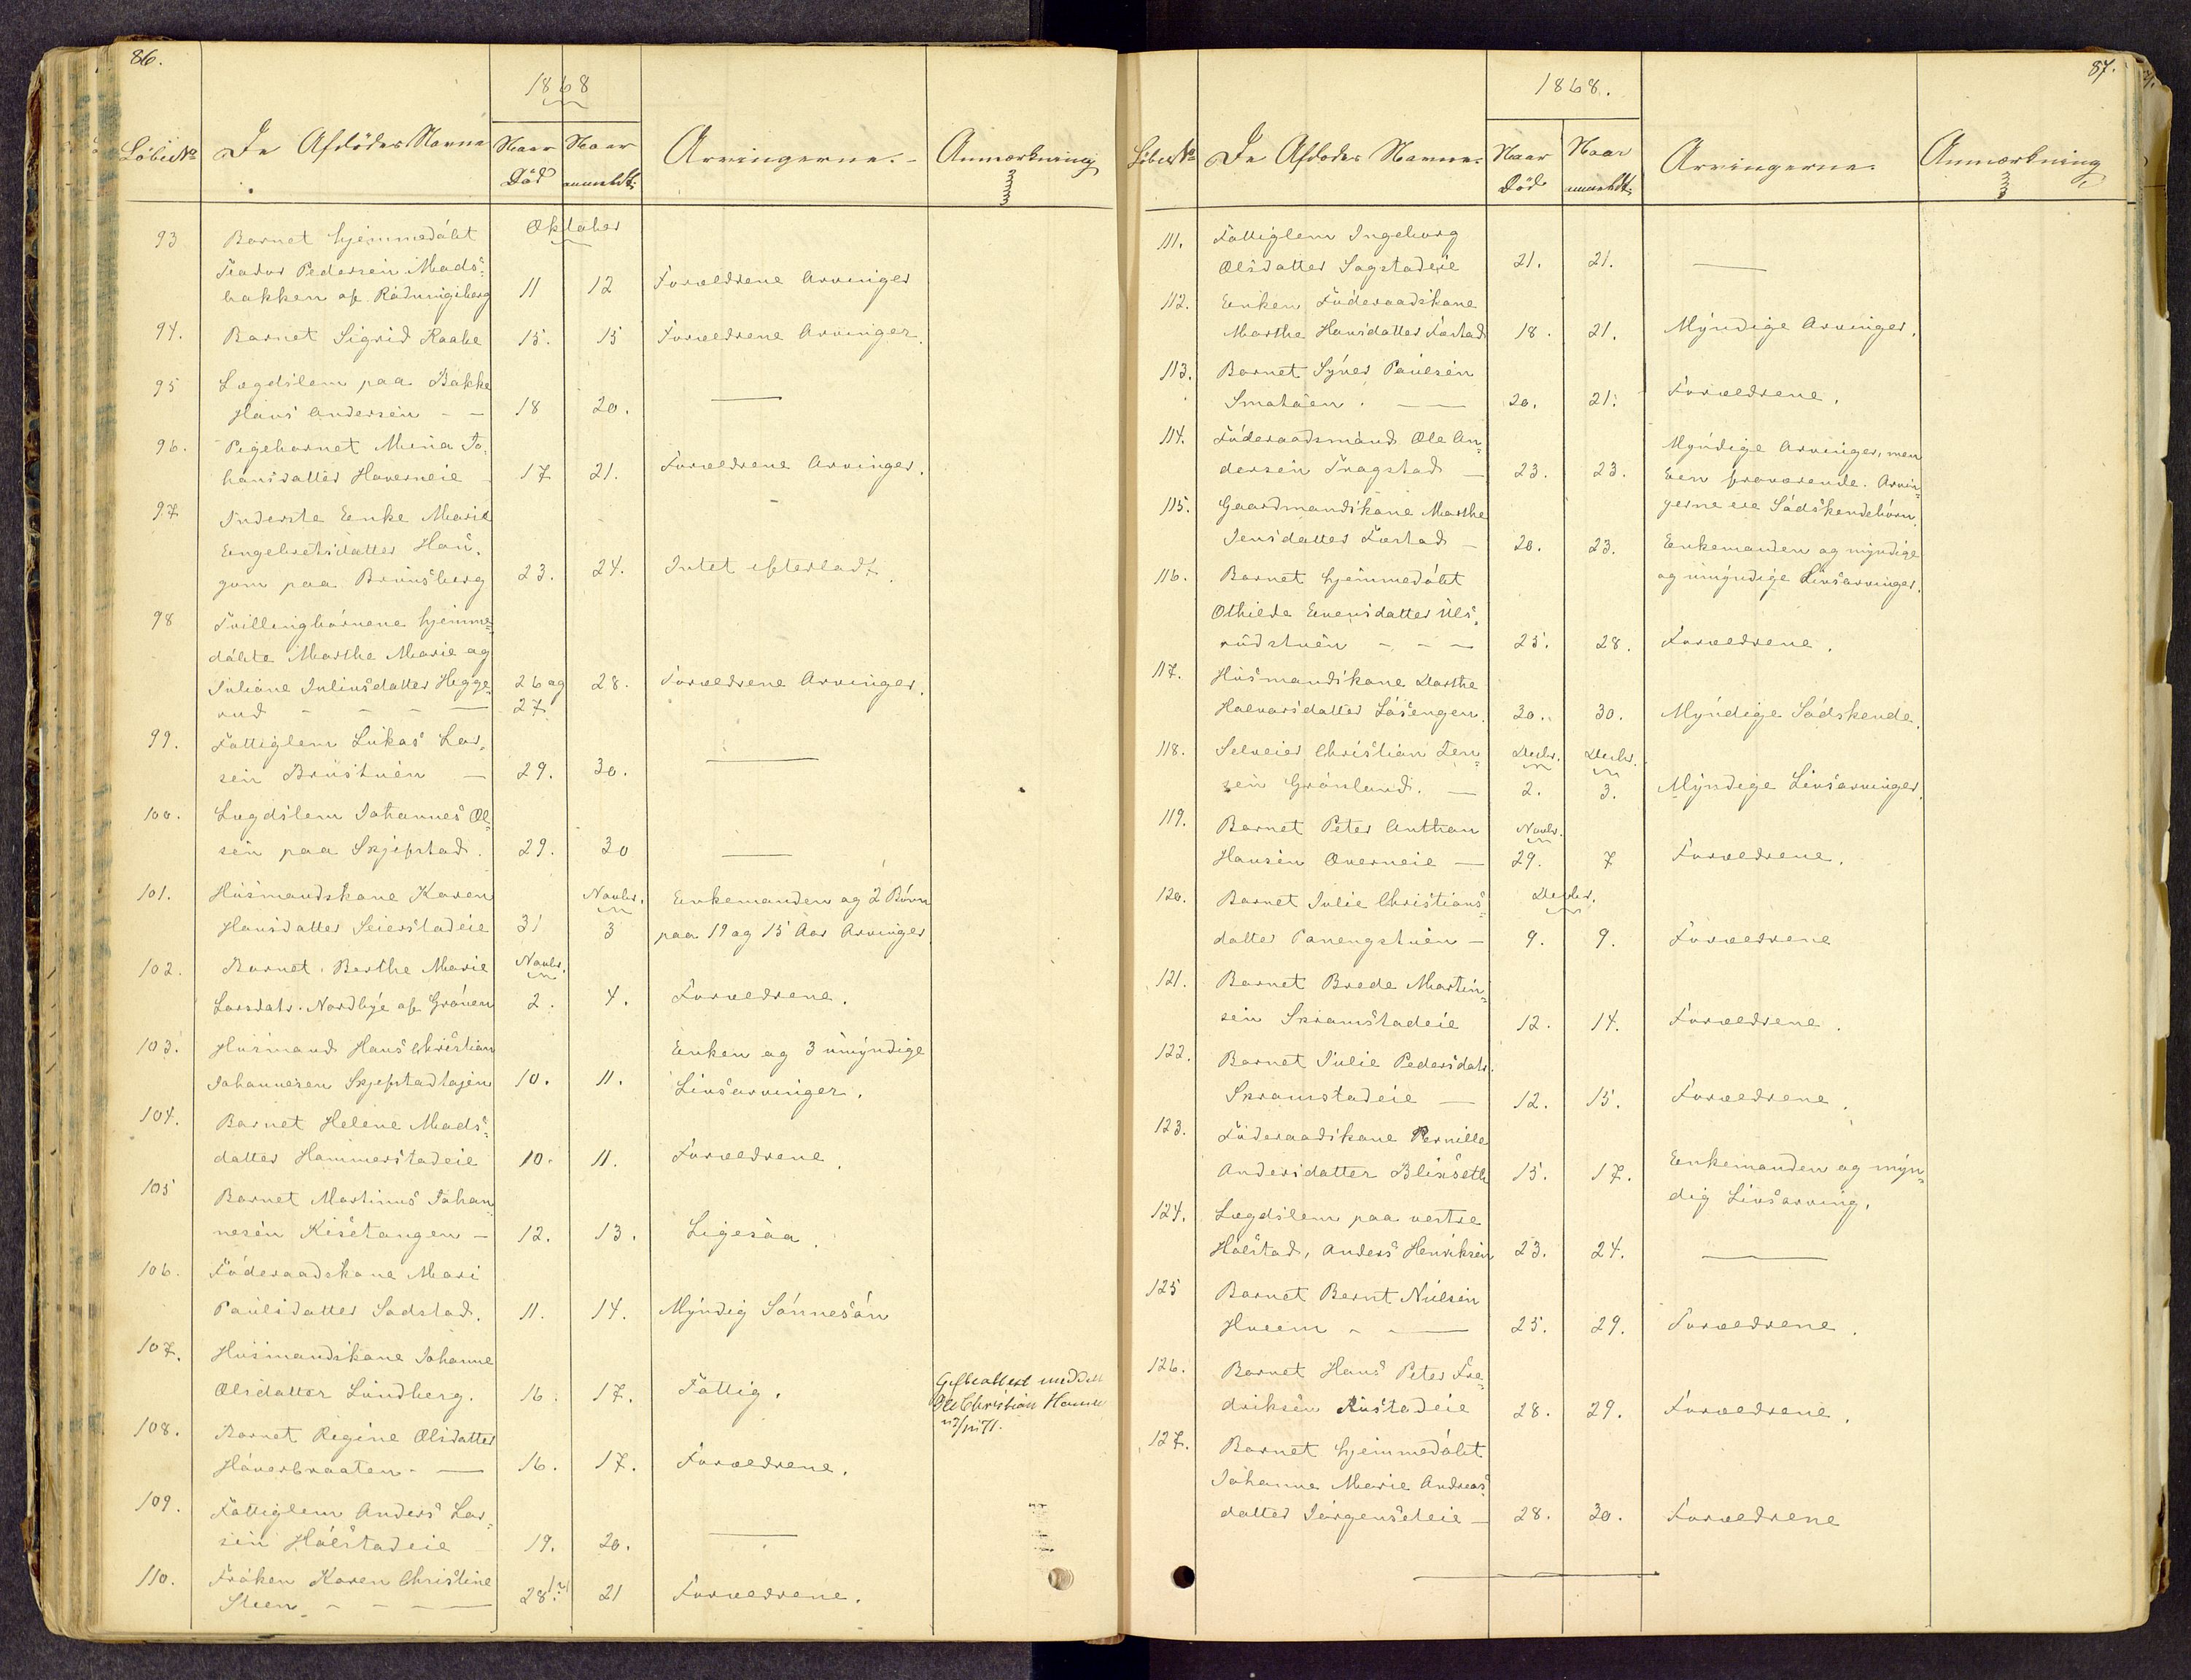 86.
1868
Löbe No
De Afdödes Navne
Naar Död
Naar anmeldt.
Arvingerne.
Anmærkning
Oktober
93 Barnet hjemmedöbt
Teodor Pedersen Mads-
bakken af 11 12 Forældrene Arvinger
94. Barnet Sigrid Raabe 15. 15 Forældrene Arvinger.
95 Lægdslem paa Bakke
Hans Andersen - - 18 20. —
96. Pigebarnet Mina Jo-
hansdatter Hoverneie 17 21. Forældrene Arvinger.
97 Inderste Enke Marie
Engebretsdatter Hau-
gom paa Bruusberg 23. 24. Intet efterladt.
98 Tvillingbörnene hjemme-
döbte Marthe Marie og
Juliane Juliusdatter Hegge- 26 og 28. Forældrene Arvinger.
rud - - - — 27
99. Fattiglem Lukas Lar-
sen Brustuen — 29. 30. —
100. Lægdslem Johannes Ol-
sen paa Skjefstad. 29. 30 —
101. Husmandskone Karen Novbr. Enkemanden og 2 Börn
Hansdatter Seierstadeie 31 3 paa 19 og 15 Aar Arvinger.
102. Barnet Berthe Marie Novbr.
Larsdatr. Nordbye af Grönen 2. 4. Forældrene.
103. Husmand Hans Christian Enken og 3 umyndige
Johannesen Skjefstadhagen 10. 11. Livsarvinger.
104. Barnet Helene Mads-
datter Hammerstadeie 10. 11. Forældrene.
105 Barnet Martinus Johan-
nesen Kisetangen — 12. 13. Ligesaa.
106. Föderaadskone Mari
Paulsdatter Sadstad. 11. 14. Myndig Sönnesön
107. Husmandskone Johanne
Olsdatter Lundberg. 16. 17. Fattig. Gifteattest medd.
Ole Christian Hansen
108. Barnet Regine Olsdatter
Höverbraaten - — 16. 17. Forældrene.
109. Fattiglem Anders Lar-
sen Hoelstadeie 19. 20. —
110. Fröken Karen Christine
Steen - - - — 28(?) 21 Forældrene.
87.
1868.
Löbe No
De Afdödes Navne
Naar Död
Naar anmeldt.
Arvingerne
Anmærkning
111. Fattiglem Ingeborg
Olsdatter Sagstadeie 21. 21. —
112. Enken Föderaadskone
Marthe Hansdatter Farstad 18. 21. Myndige Arvinger.
113. Barnet Synes Paulsen
Smohaen. — 20. 21. Forældrene.
114. Föderaadsmand Ole An- Myndige Arvinger, men
dersen Tragstad — 23. 23. Een fraværende. Arvin-
115. Gaardmandskone Marthe gerne ere Södskendebörn.
Jensdatter Farstad — 20. 23. Enkemanden og myndige
116. Barnet hjemmedöbt og umyndige Livsarvinger.
Othilde Evensdatter Uls-
rudstuen - - — 25. 28. Forældrene.
117. Husmandskone Dorthe
Halvorsdatter Låsengen. 30. 30. Myndige Södskende.
118. Selveier Christian Jen- Decbr. Decbr.
sen Grönland. — 2. 3. Myndige Livsarvinger.
119. Barnet Peter Anthon Novbr.
Hansen Overneie — 29. 7 Forældrene.
120. Barnet Julie Christians- Decbr.
datter Panengstuen — 9. 9. Forældrene
121. Barnet Brede Martin-
sen Skramstadeie 12. 14. Forældrene.
122. Barnet Julie Pedersdatr.
Skramstadeie — 12. 15. Forældrene.
123. Föderaadskone Pernille
Andersdatter Blikseth 15. 17. Enkemanden og myn-
dig Livsarving.
124. Lægdslem paa vestre
Hoelstad, Anders Henriksen 23. 24. —
125 Barnet Bernt Nielsen
Hveem - — 25. 29. Forældrene.
126. Barnet Hans Peter Fre-
driksen Rustadeie 28. 29. Forældrene.
127. Barnet hjemmedöbt
Johanne Marie Andreas-
datter Jörgenseteie — 28. 30. Forældrene